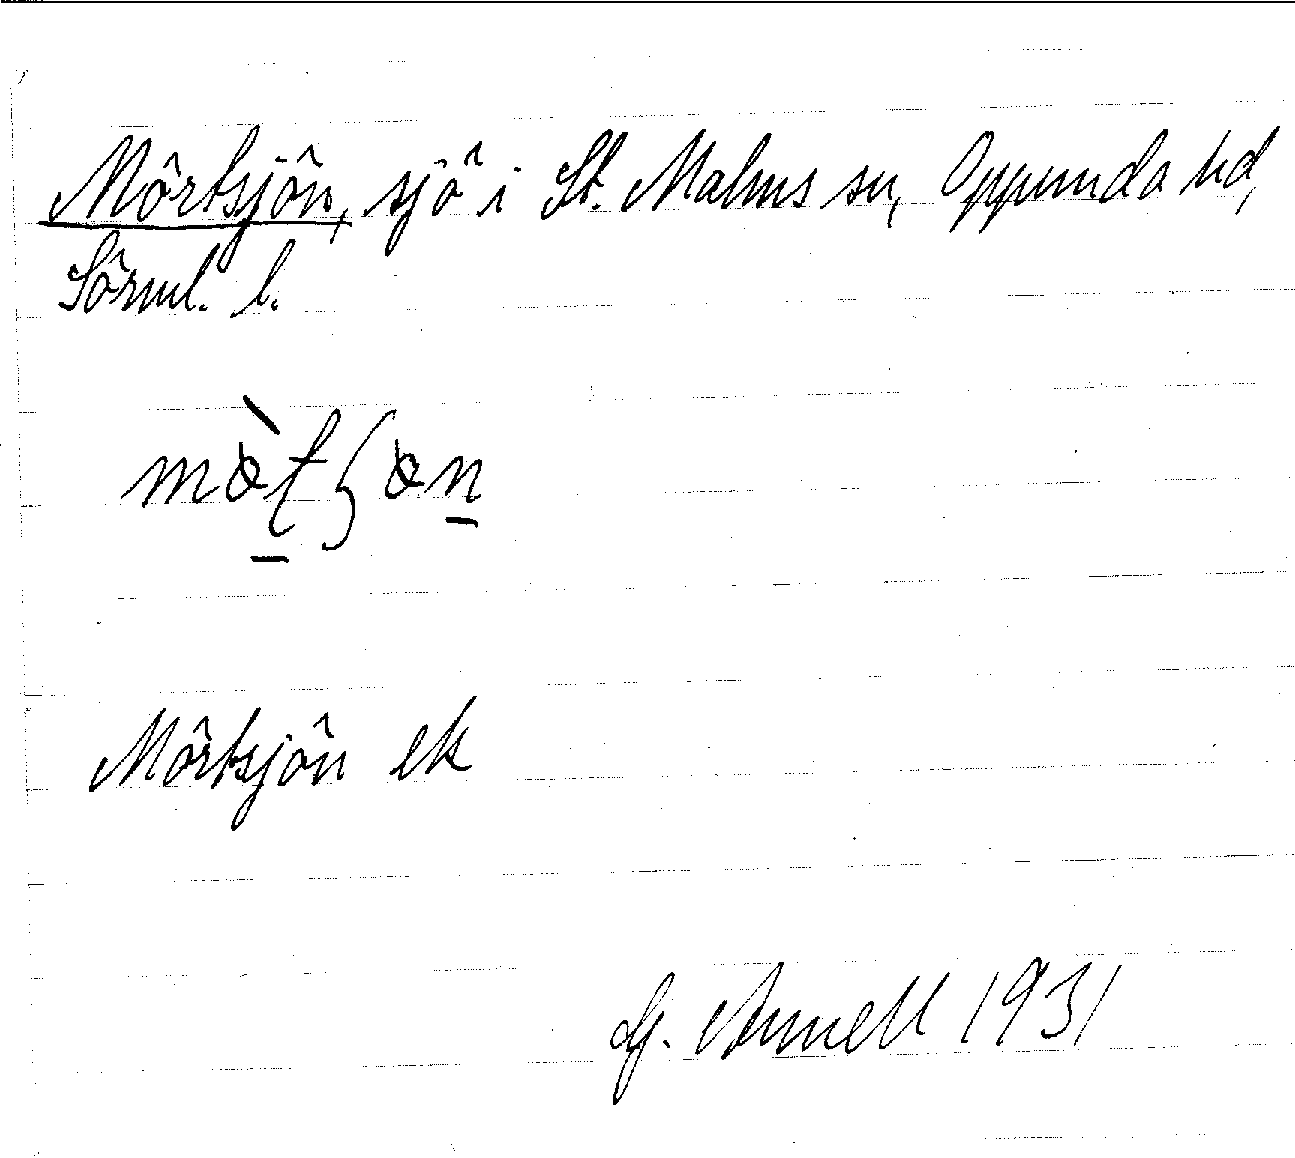 Mörtsjön, sjö i St. Malms sn, Oppunda hd,
Sörml. l.
Mörtsjön ek
G. Annell 1931